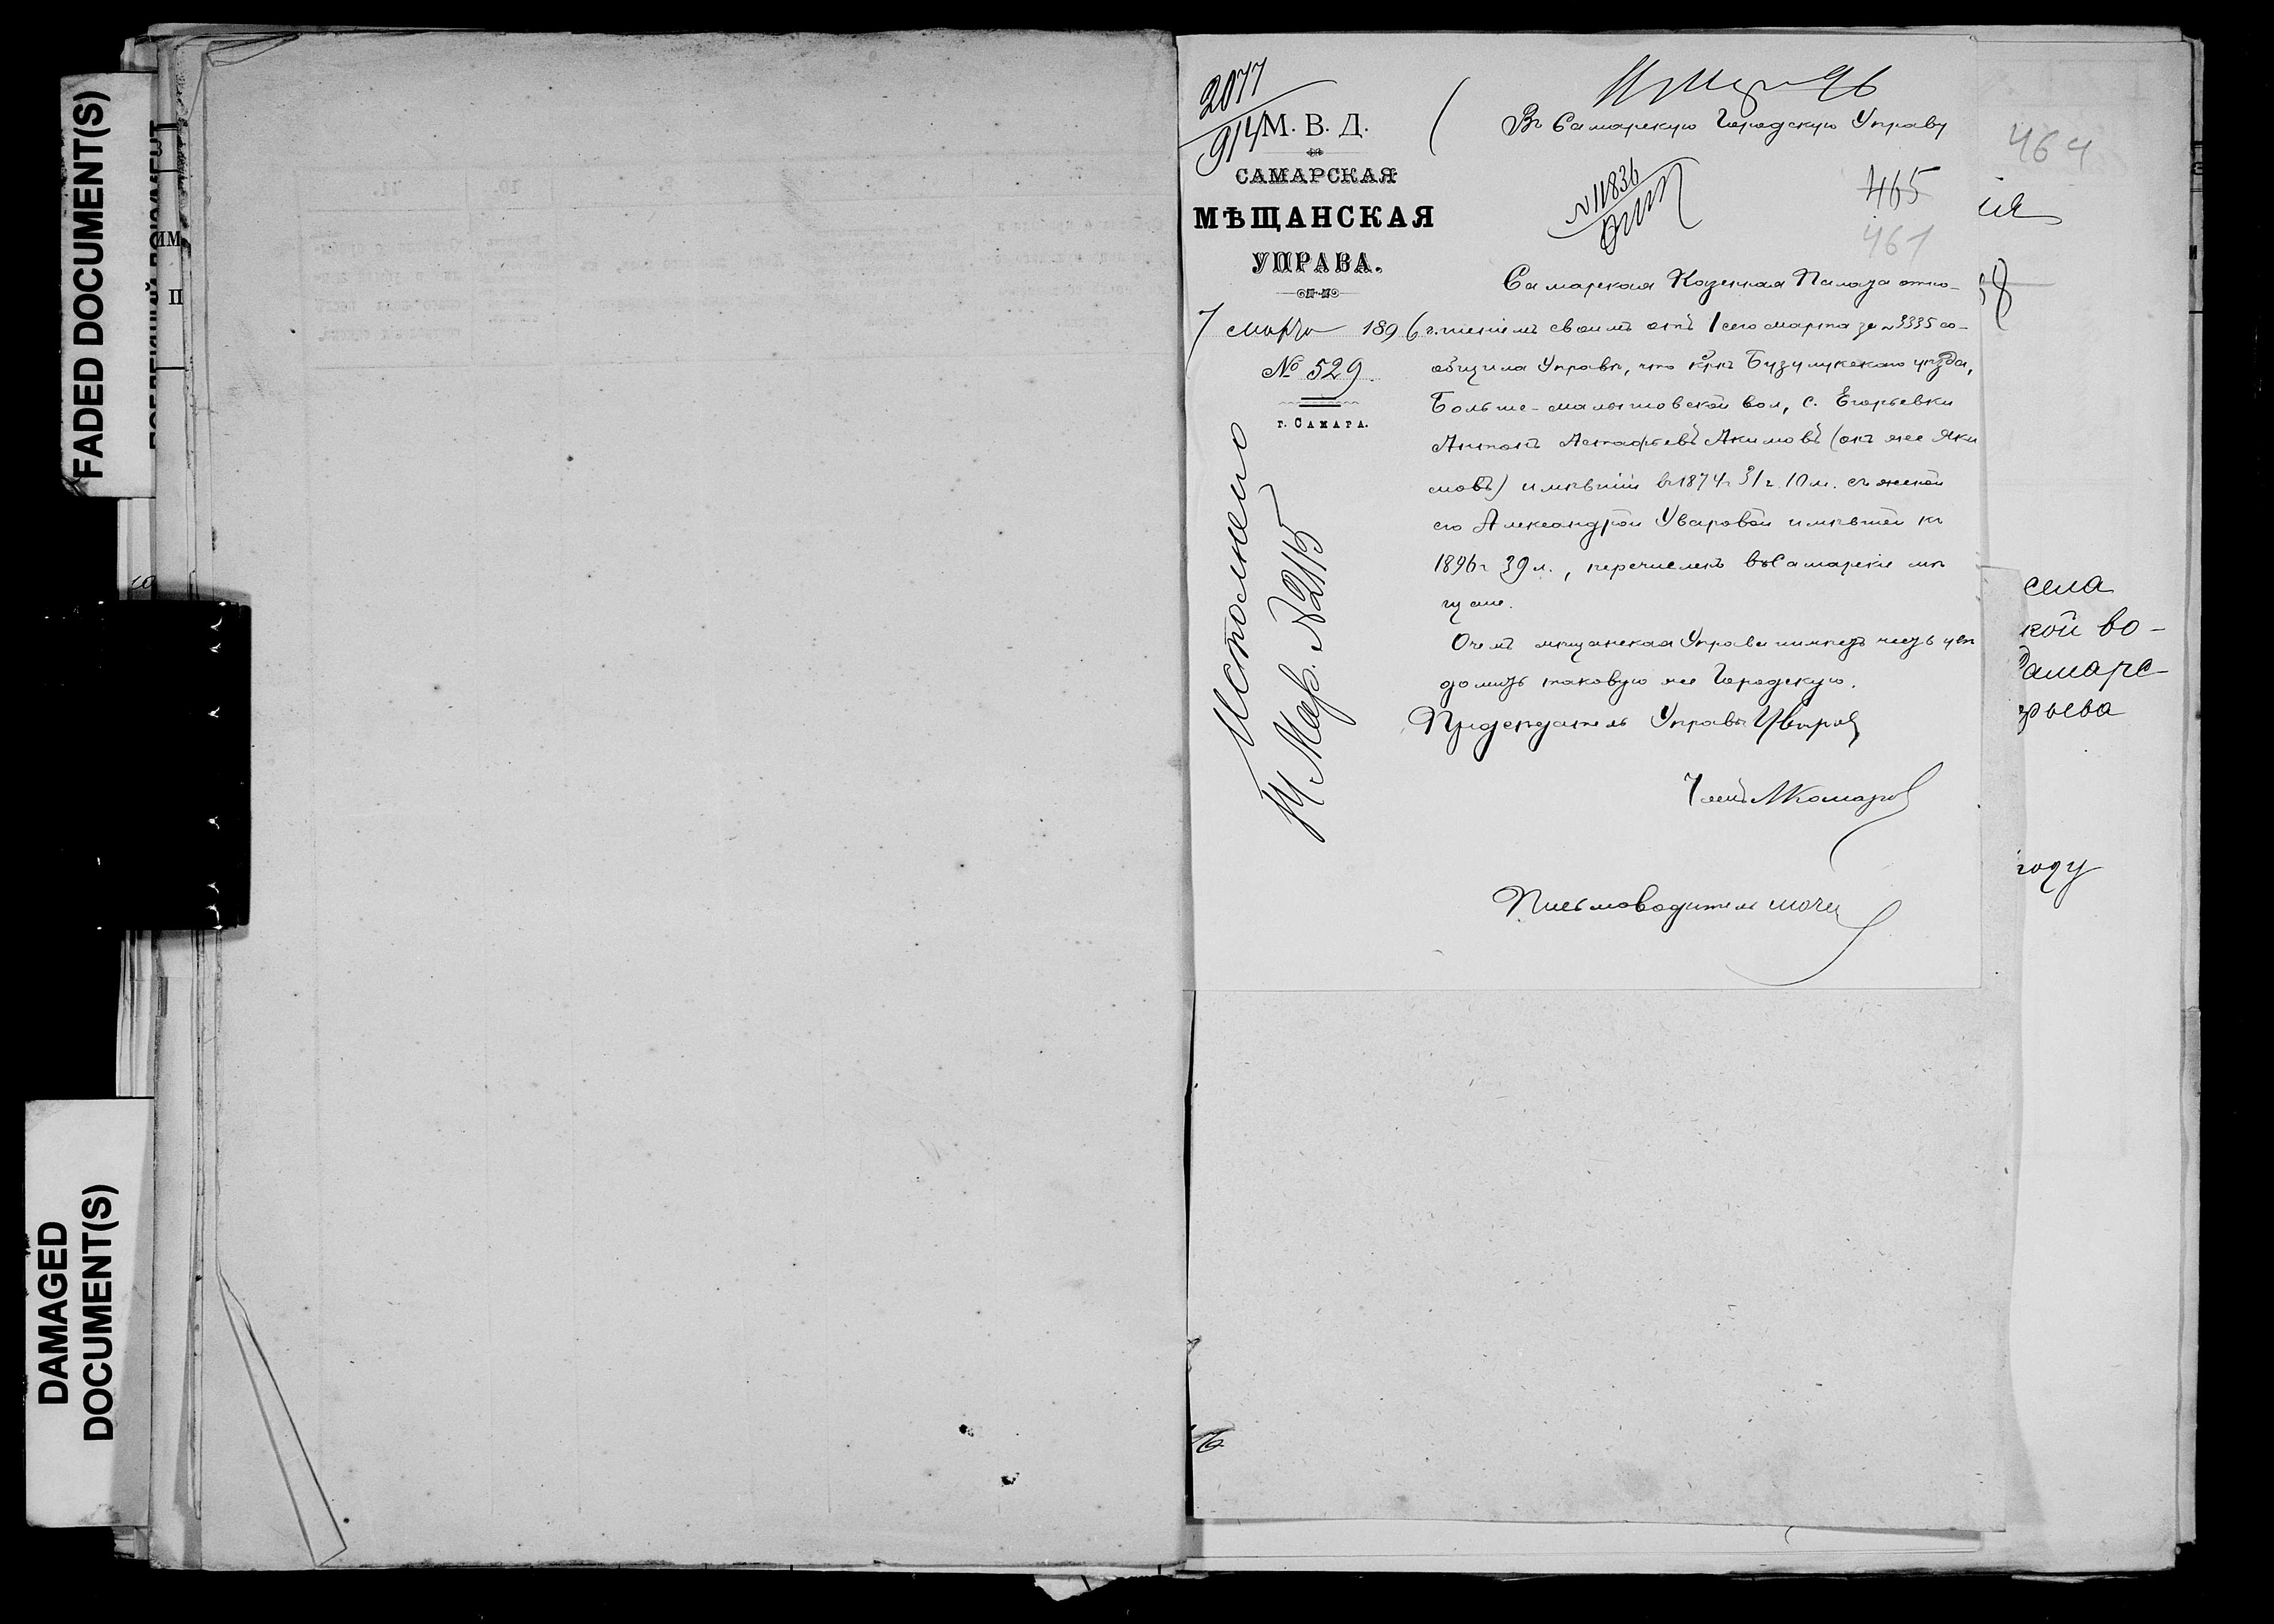 FADED DOCUMENT(S)
DAMAGED
DOCUMENT(S)
2077
914
М. В. Д.
САМАРСКАЯ
МѢЩАНСКАЯ
УПРАВА.
7 марта 1896 г.
№ 529
г. САМАРА.
Исполнено
Мар. №2115
Въ Самарскую Городскую Управу
№11836
465
461
Самарская Казенная Палата отно-
шеніемъ своимъ отъ 1 сего марта за №3335 со-
общила Управѣ, что кр-нъ Бузулукскаго уѣзда,
Больше-малышовской вол, с. Егорьевки
Антонъ Астафьевъ Акимовъ (онъ же Яки
мовъ) имѣвшій въ 1874 г. 31 г. 10 м. съ женой
его Александрой Уваровой имѣвшей къ
1896 г. 39 л., перечисленъ въ Самарскіе мѣ
щане.
О чемъ мѣщанская Управа имѣетъ честь увѣ
домить таковую же Городскую.
Предсѣдатель Управы
Членъ МКомаров
Письмоводитель
464
ія
села
кой во-
Самарс-
рьева
году
16